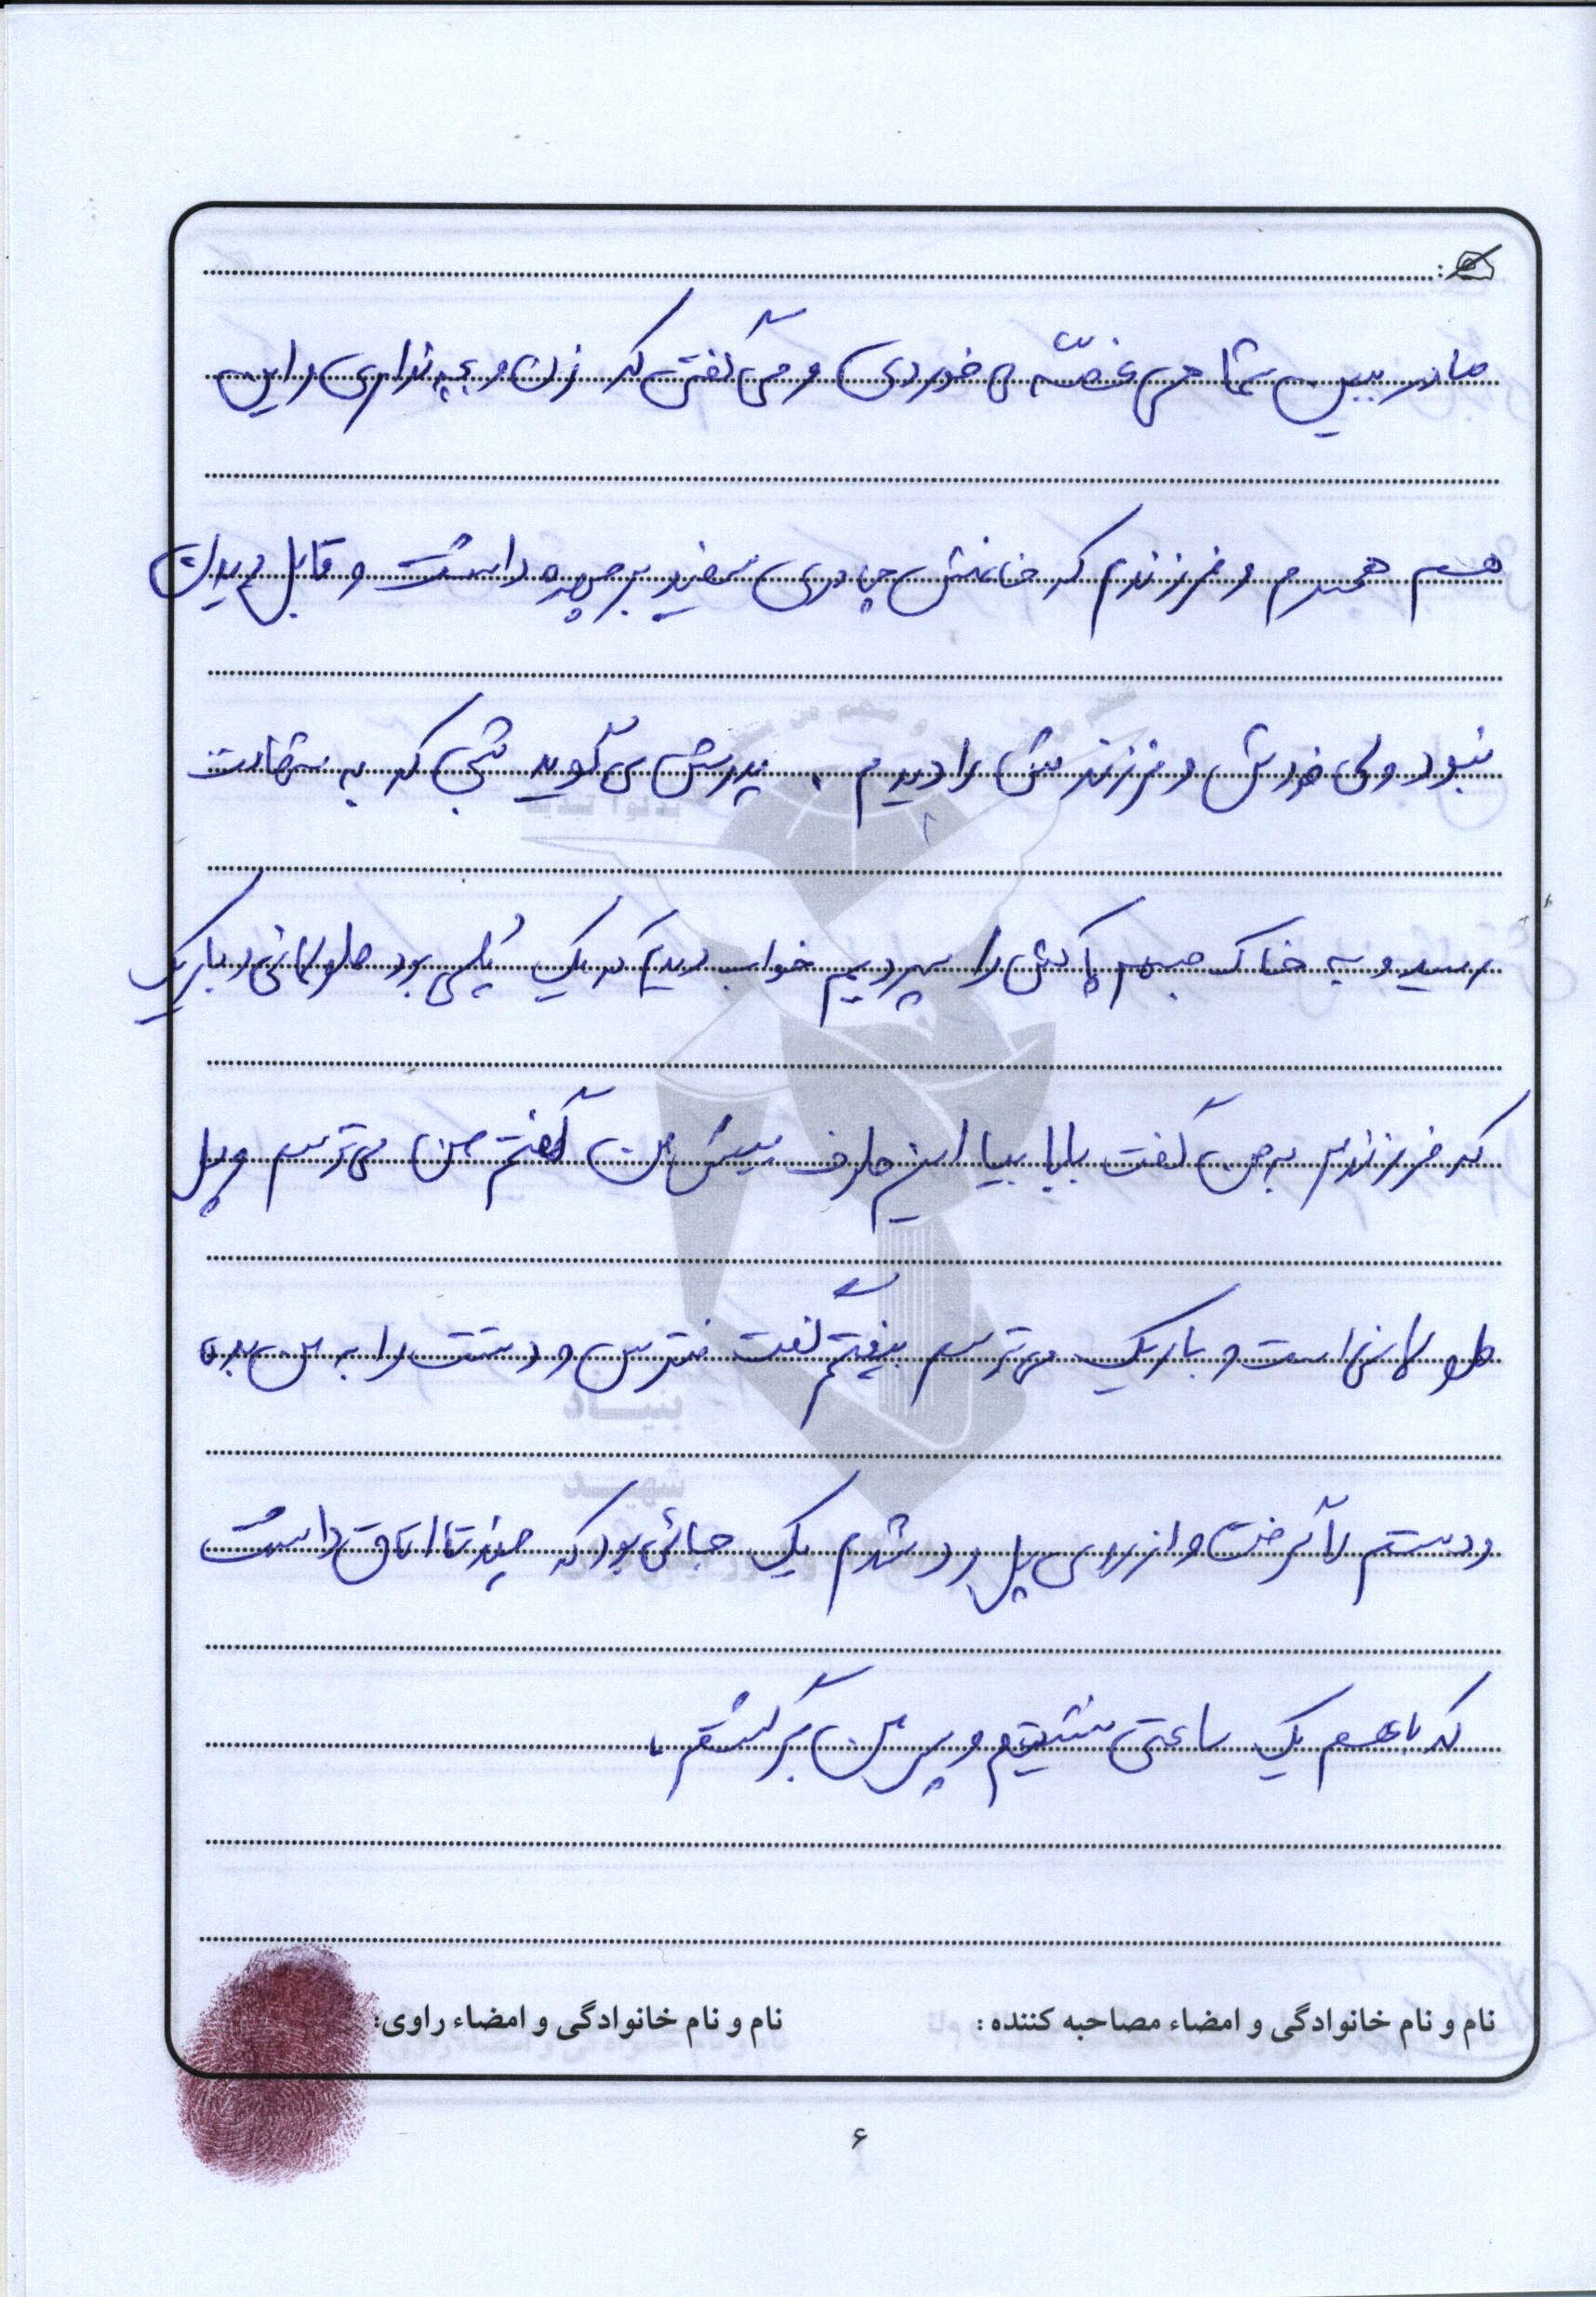 مادر ببین شما هی غصّه می خوردی و می گفتی که زن و بچه نداری و این
هم همسرم و فرزندم که خانمش چادری سفید بر چهره داشت و قابل دیدن
نبود ولی خودش و فرزندش را دیدم . پدرش می گوید شبی که به شهادت
رسید و به خاک جسم پاکش را سپردیم خواب دیدم که یک پُلی بود طولانی و باریک
که فرزندم به من گفت بابا بیا این طرف پیش من گفتم من می ترسم و پل
طولانی است و باریک می ترسم بیفتم گفت نترس و دستت را به من بده
و دستم را گرفت و از روی پل رد شدم یک جائی بود که چند تا اتاق داشت
که با هم یک ساعتی نشستیم و پس من برگشتم .
نام و نام خانوادگی و امضاء مصاحبه کننده : نام و نام خانوادگی و امضاء راوی:
۶